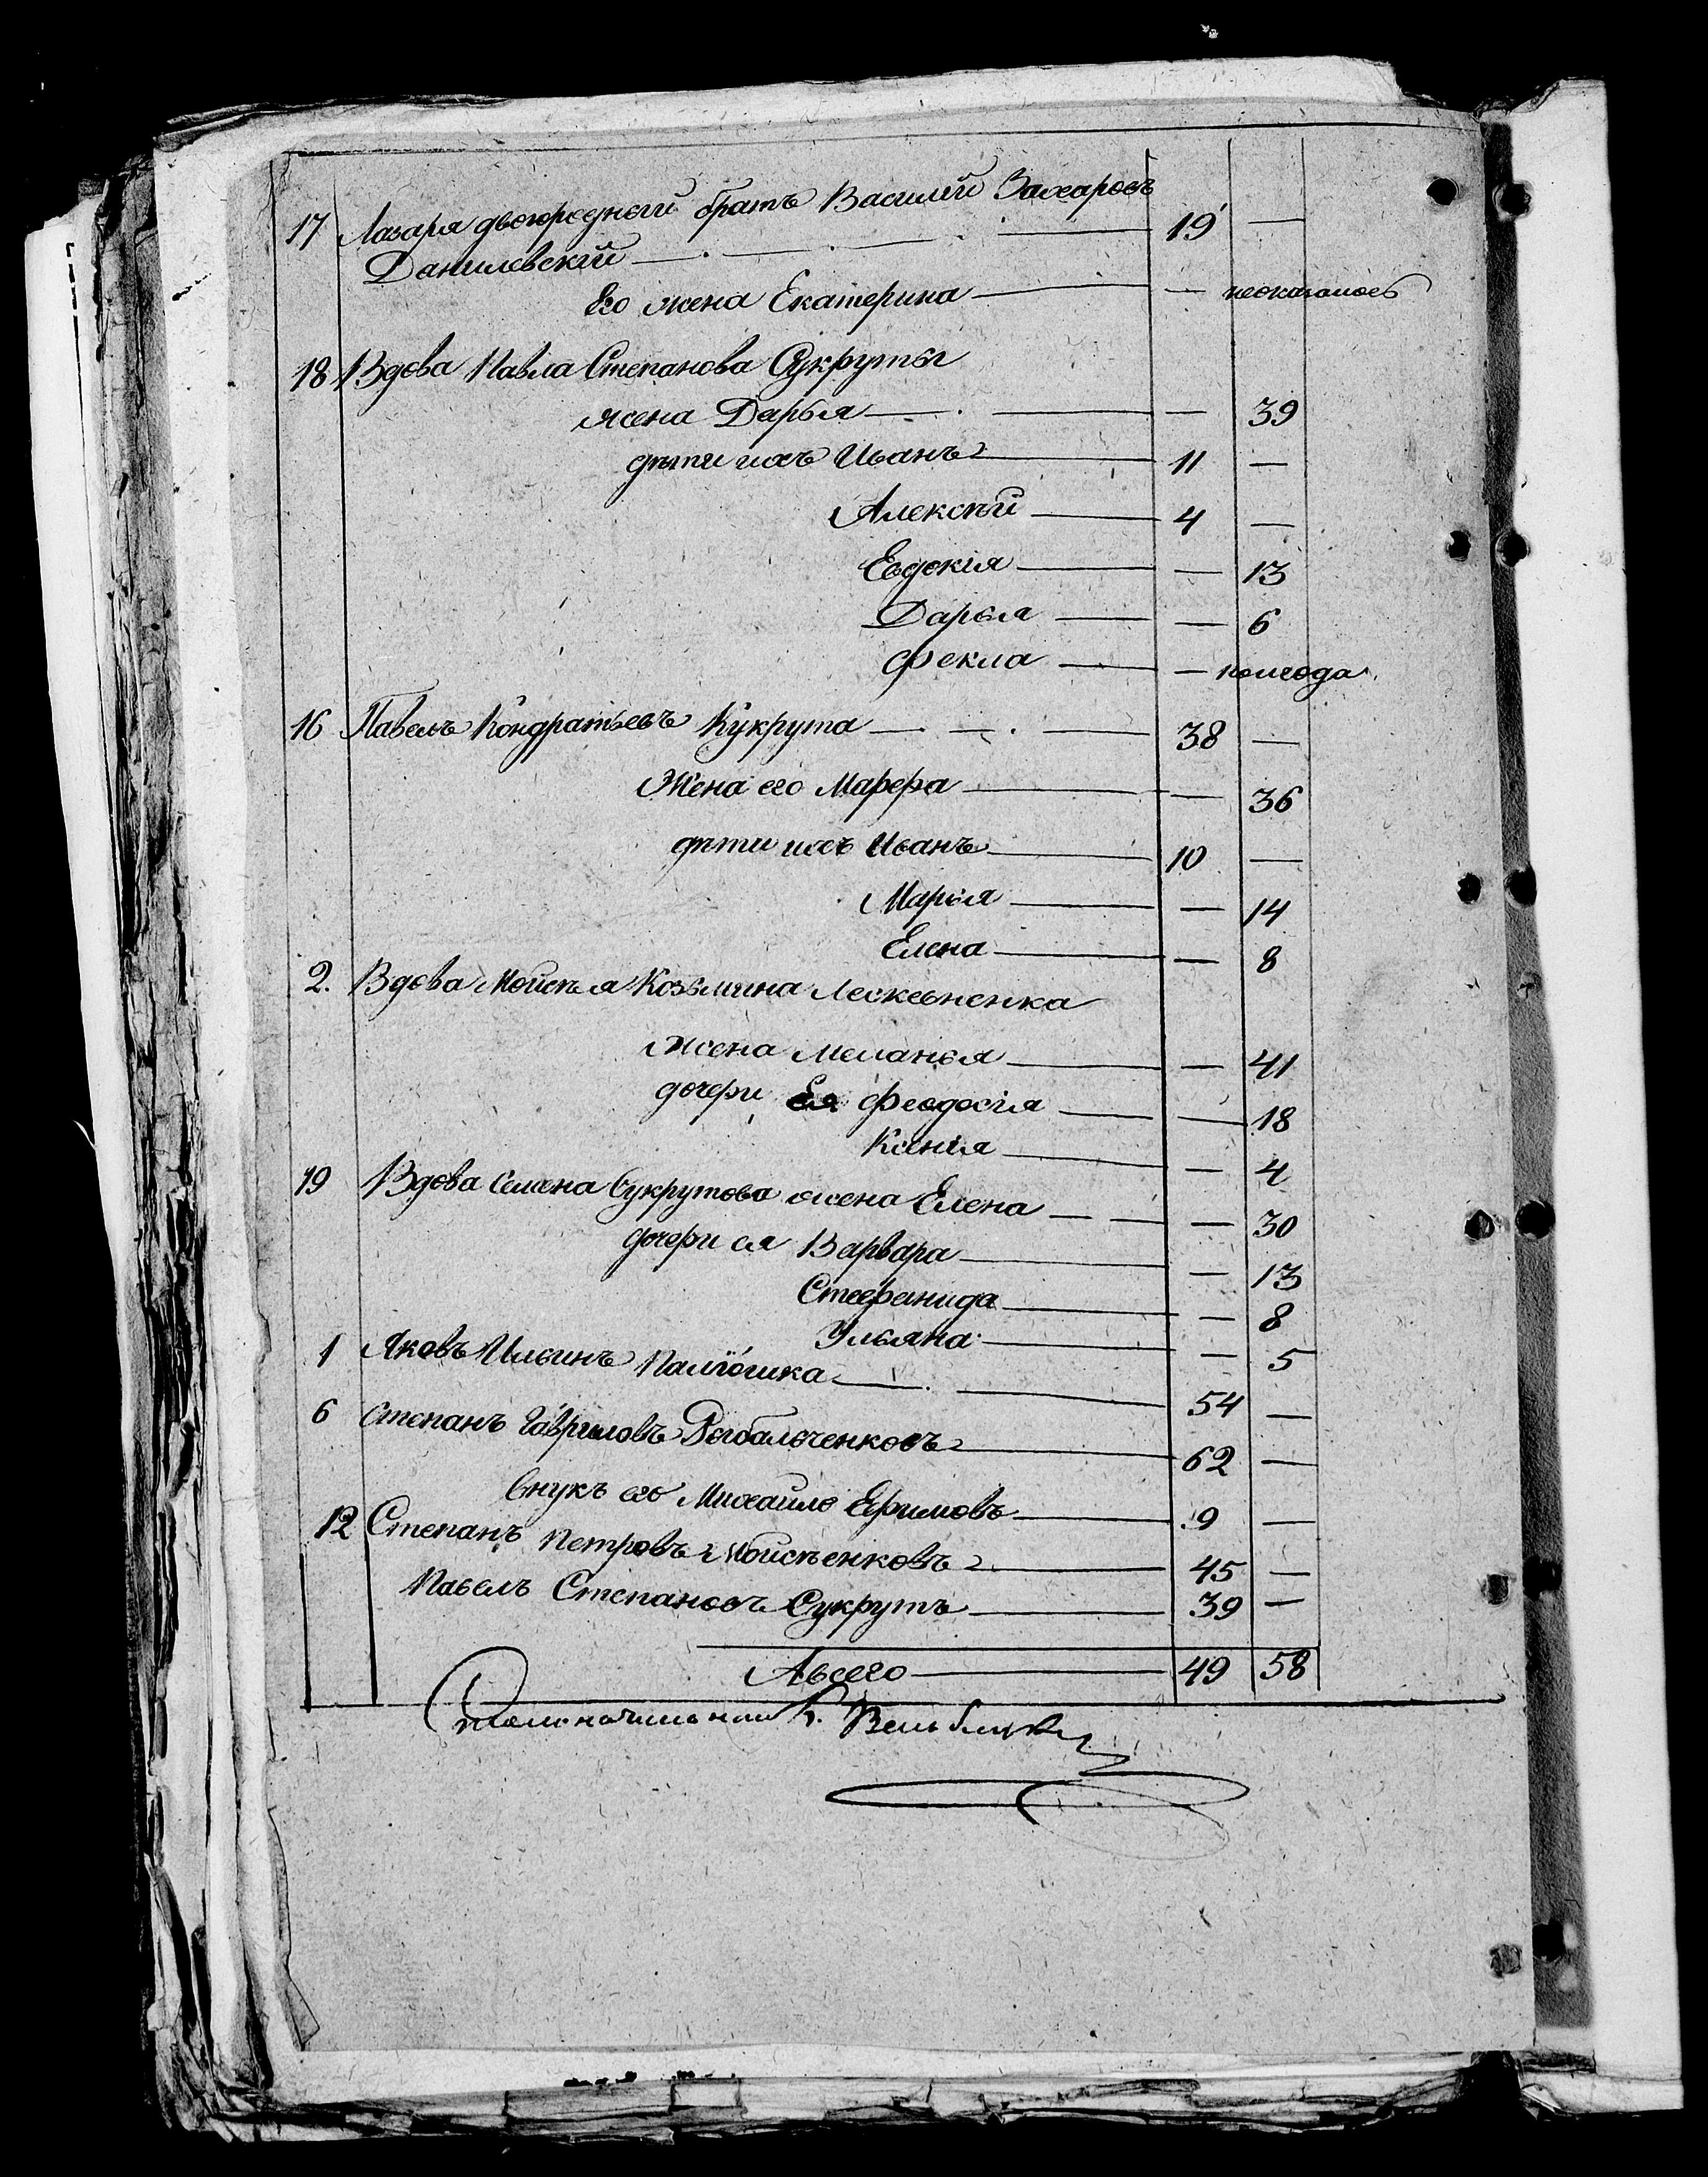 17 Лазаря двоюродной братъ Василий Захаровъ
Данилевский — 19 —
Его жена Екатерина — — неоказалось
18 Вдова Павла Степанова Сукруты
жена Дарья — — 39
дѣти ихъ Иванъ — 11 —
Алексѣй — 4 —
Евдокія — — 13
Дарья — — 6
Фекла — — полгода
16 Павелъ Кондратьевъ Кукрута — 38 —
Жена его Марфа — — 36
дѣти ихъ Иванъ — 10 —
Марья — — 14
Елена — — 8
2. Вдова Мойсѣя Козьмина
жена Меланья — — 41
дочери Ея Феодосія — — 18
Ксенія — — 4
19 Вдова Семена Сукрутова жена Елена — — 30
дочери ея Варвара — — 13
Стефанида — — 8
Ульяна — — 5
1 Яковъ Ильинъ — 54 —
6 Степанъ Гавриловъ Рыбалоченковъ — 62 —
внукъ его Михайло Ефимовъ — 9 —
12 Степанъ Петровъ Мойсѣенковъ — 45 —
Павелъ Степановъ Сукрутъ — 39 —
Авсего — 49 58
Столоначальникъ